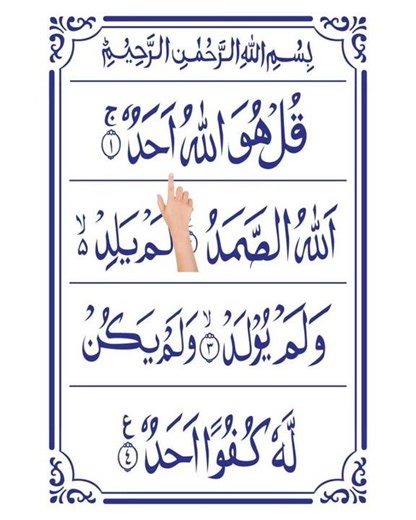 بِسْمِ اللهِ الرَّحْمٰنِ الرَّحِيْمِ
قُلْ هُوَ اللهُ اَحَدٌ ۚ ۝١
اَللهُ الصَّمَدُ لَمْ يَلِدْ ۙ۵
وَلَمْ يُوْلَدْ ۙ ۝٣ وَلَمْ يَكُنْ
لَّهٗ كُفُوًا اَحَدٌ ۧ ۝٤